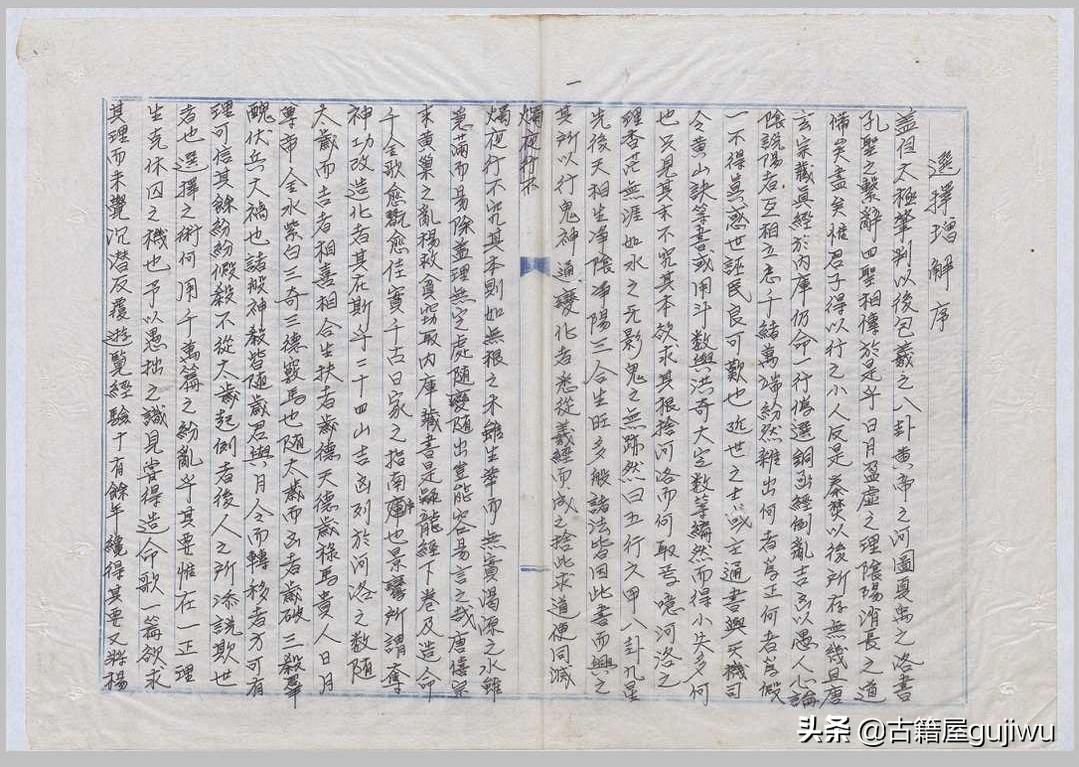 一
選擇增解序
蓋但太極肇判以後包羲之八卦黃帝之河圖夏禹之洛書
孔聖之繫辭四聖相傳於是乎日月盈虛之理陰陽消長之道
備矣盡矣惟君子得以行之小人反是秦焚以後所存無幾且唐
玄宗藏眞經於內庫仍命一行僞選銅函經倒亂吉凶以愚人心論
陰說陽者互相立忌千緒萬端紛然雜出何者爲正何者爲假
一不得眞惑世誣民良可歎也近世之士或主通書與天機司
令黃山訣等書或用斗數與洪奇大定數等繽然而得小失多何
也只見其末不究其本欲求其根捨河洛而何取焉噫河洛之
理杳茫無涯如水之无影鬼之無跡然曰五行六甲八卦九星
先後天相生净陰净陽三合生旺多般諸法皆因此書而興之
其所以行鬼神通變化者悉從羲經而成之捨此求道便同滅
燭夜行不
燭夜行不究其本則如無根之木雖生華而無實渴源之水雖
蒐滿而易除蓋理無定處隨變隨出豈能容易言之哉唐僖宗
末黃巢之亂楊救貧竊取內庫藏書是疑龍經下卷及造命
千金歌愈甑愈佳實千古日家之指南車也景鸞所謂奪
神功改造化者其在斯乎二十四山吉凶列於河洛之數隨
太歲而吉者相喜相合生扶者歲德天德歲祿馬貴人日月
尊帝金水紫白三奇三德竅馬也隨太歲而凶者歲破三殺羅
醜伏兵大禍也諸般神殺皆隨歲君與月令而轉移者方可有
理可信其餘紛紛假殺不從太歲起例者後人之所添說欺世
者也選擇之術何用千萬篇之紛亂乎其要惟在一正理
生克休囚之機也予以愚拙之識見嘗得造命歌一篇欲求
其理而未覺沉潛反覆遊覽經驗十有餘年纔得其要又將楊
头条 @古籍屋gujiwu